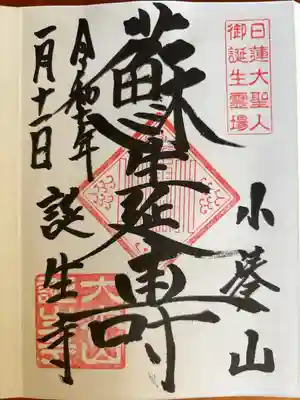 日蓮大聖人
御誕生霊場
小湊山
蘇生延寿
令和年
一月十一日
誕生寺
大本山
誕生寺